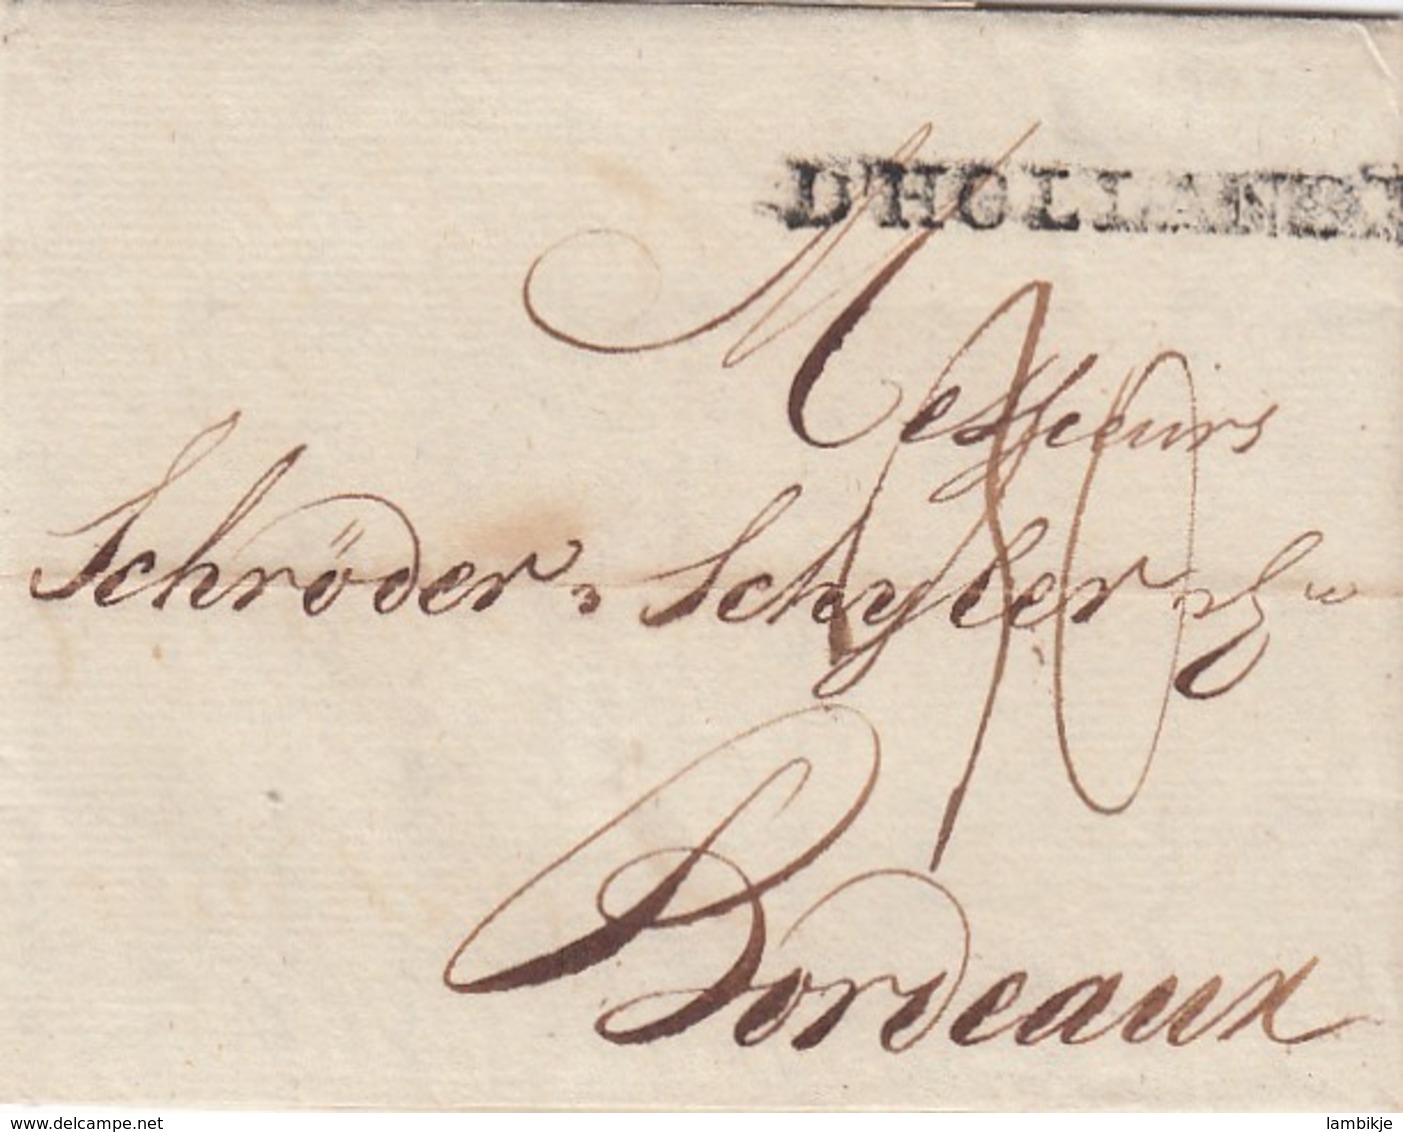 D'HOLLANDE
Messieurs
Schröder, Schyler & Co
Bordeaux
www.delcampe.net
lambikje